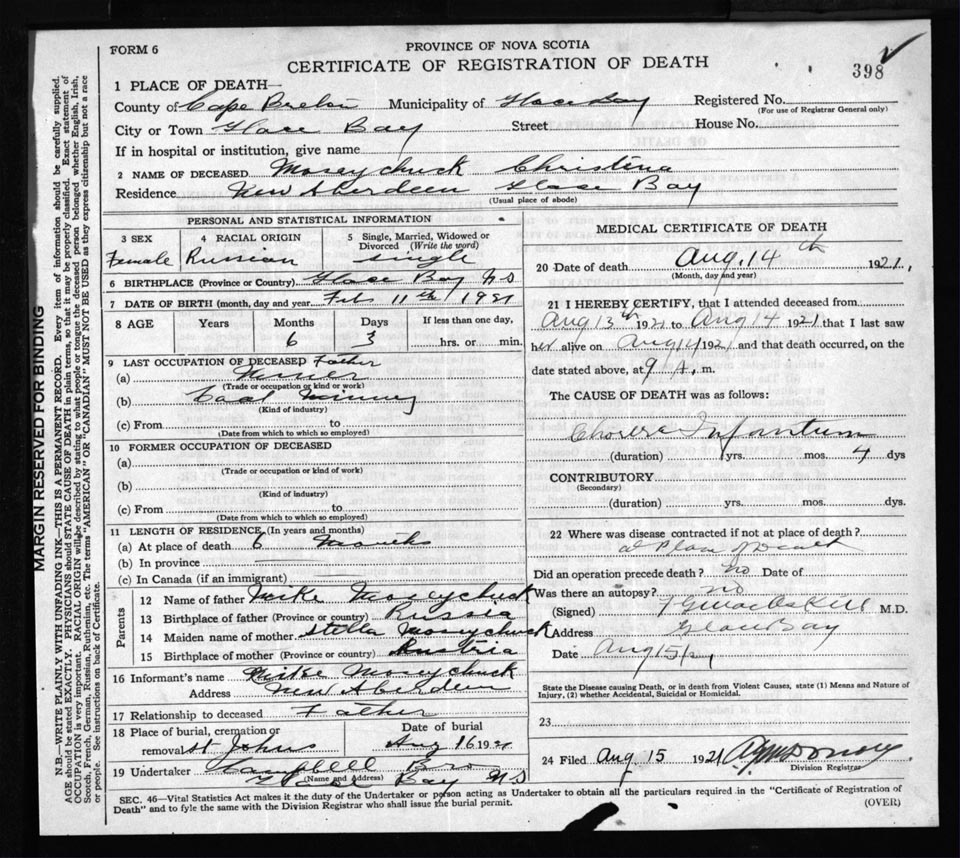 FORM 6
PROVINCE OF NOVA SCOTIA
CERTIFICATE OF REGISTRATION OF DEATH
398
1 PLACE OF DEATH—
County of Cape Breton Municipality of Glace Bay Registered No.
(For use of Registrar General only)
City or Town Glace Bay Street House No.
If in hospital or institution, give name
2 NAME OF DECEASED Moseychuck Christina
Residence New Aberdeen Glace Bay
(Usual place of abode)
PERSONAL AND STATISTICAL INFORMATION
3 SEX
Female
4 RACIAL ORIGIN
Russian
5 Single, Married, Widowed or Divorced (Write the word)
single
6 BIRTHPLACE (Province or Country) Glace Bay NS
7 DATE OF BIRTH (month, day and year) Feb 11th 1921
8 AGE Years Months Days If less than one day,
6 3 hrs. or min.
9 LAST OCCUPATION OF DECEASED Father
(a) Miner
(Trade or occupation or kind or work)
(b) Coal Mining
(Kind of industry)
(c) From to
(Date from which to which so employed)
10 FORMER OCCUPATION OF DECEASED
(a)
(Trade or occupation or kind of work)
(b)
(Kind of industry)
(c) From to
(Date from which to which so employed)
11 LENGTH OF RESIDENCE (In years and months)
(a) At place of death 6 Months
(b) In province
(c) In Canada (if an immigrant)
Parents
12 Name of father Mike Moseychuck
13 Birthplace of father (Province or country) Russia
14 Maiden name of mother Stella Moseychuck
15 Birthplace of mother (Province or country) Austria
16 Informant's name Mike Moseychuck
Address New Aberdeen
17 Relationship to deceased Father
18 Place of burial, cremation or removal St Johns
Date of burial
Aug 16 1921
19 Undertaker Campbell Bros
(Name and Address)
Glace Bay NS
MEDICAL CERTIFICATE OF DEATH
20 Date of death Aug. 14th 1921.
(Month, day and year)
21 I HEREBY CERTIFY, that I attended deceased from
Aug 13th 1921 to Aug 14 1921 that I last saw
her alive on Aug 14 1921 and that death occurred, on the
date stated above, at 9 A. m.
The CAUSE OF DEATH was as follows:
Cholera Infantum
(duration) yrs. mos. 4 dys
CONTRIBUTORY
(Secondary)
(duration) yrs. mos. dys.
22 Where was disease contracted if not at place of death?
at Place of Death
Did an operation precede death? no Date of
Was there an autopsy? no
(Signed) M.D.
Address Glace Bay
Date Aug 15/21
State the Disease causing Death, or in death from Violent Causes, state (1) Means and Nature of Injury, (2) whether Accidental, Suicidal or Homicidal.
23
24 Filed Aug 15 1921
Division Registrar
SEC. 46—Vital Statistics Act makes it the duty of the Undertaker or person acting as Undertaker to obtain all the particulars required in the "Certificate of Registration of
Death" and to fyle the same with the Division Registrar who shall issue the burial permit.
(OVER)
MARGIN RESERVED FOR BINDING
N.B.—WRITE PLAINLY WITH UNFADING INK—THIS IS A PERMANENT RECORD. Every item of information should be carefully supplied.
AGE should be stated EXACTLY. PHYSICIANS should STATE CAUSE OF DEATH in plain terms, so that it may be properly classified. Exact statement of
OCCUPATION is very important. RACIAL ORIGIN will be described by stating to what people or tongue the deceased person belonged whether English, Irish,
Scotch, French, German, Russian, Ruthenian, etc. The terms "AMERICAN" OR "CANADIAN" MUST NOT BE USED as they express citizenship but not a race
or people. See instructions on back of Certificate.